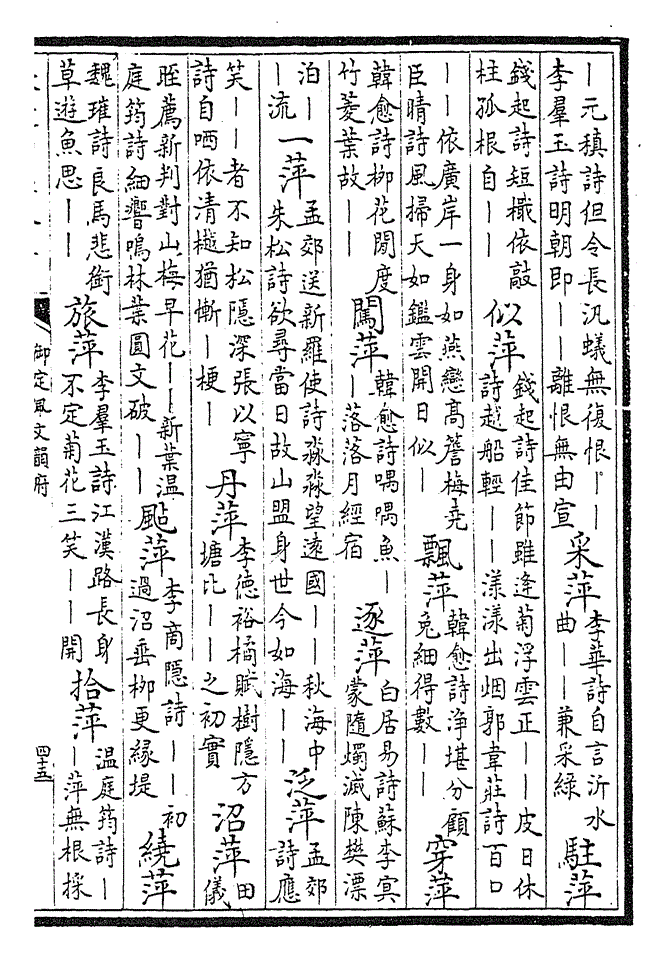 丨元稹詩但令長汎蟻無復恨丨丨
李羣玉詩明朝即丨丨離恨無由宣
采萍
李華詩自言沂水
曲丨丨兼采綠
駐萍
錢起詩短檝依敲
柱孤根自丨丨
似萍
錢起詩佳節雖逢菊浮雲正丨丨皮日休
詩越船輕丨丨漾漾出烟郭韋莊詩百口
丨丨依廣岸一身如燕戀高簷梅堯
臣晴詩風掃天如鑑雲開日似丨
飄萍
韓愈詩浄堪分顧
兔細得數丨丨
穿萍
韓愈詩栁花閒度
竹菱葉故丨丨
闖萍
韓愈詩喁喁魚丨
丨落落月經宿
逐萍
白居易詩蘇李㝠
蒙隨燭滅陳樊漂
泊丨
丨流
一萍
孟郊送新羅使詩淼淼望遠國丨丨秋海中
朱松詩欲尋當日故山盟身世今如海丨丨
泛萍
孟郊
詩應
笑丨丨者不知松隱深張以寧
詩自哂依清樾猶慚丨梗丨
丹萍
李德裕橘賦樹隱方
塘比丨丨之初實
沼萍
田
儀
晊薦新判對山梅早花丨丨新葉温
庭筠詩細響鳴林葉圓文破丨丨
颭萍
李商隱詩丨丨初
過沼垂栁更緣堤
繞萍
魏璀詩良馬悲銜
草遊魚思丨丨
旅萍
李羣玉詩江漢路長身
不定菊花三笑丨丨開
拾萍
温庭筠詩丨
丨萍無根採
御定佩文韻府
四十五